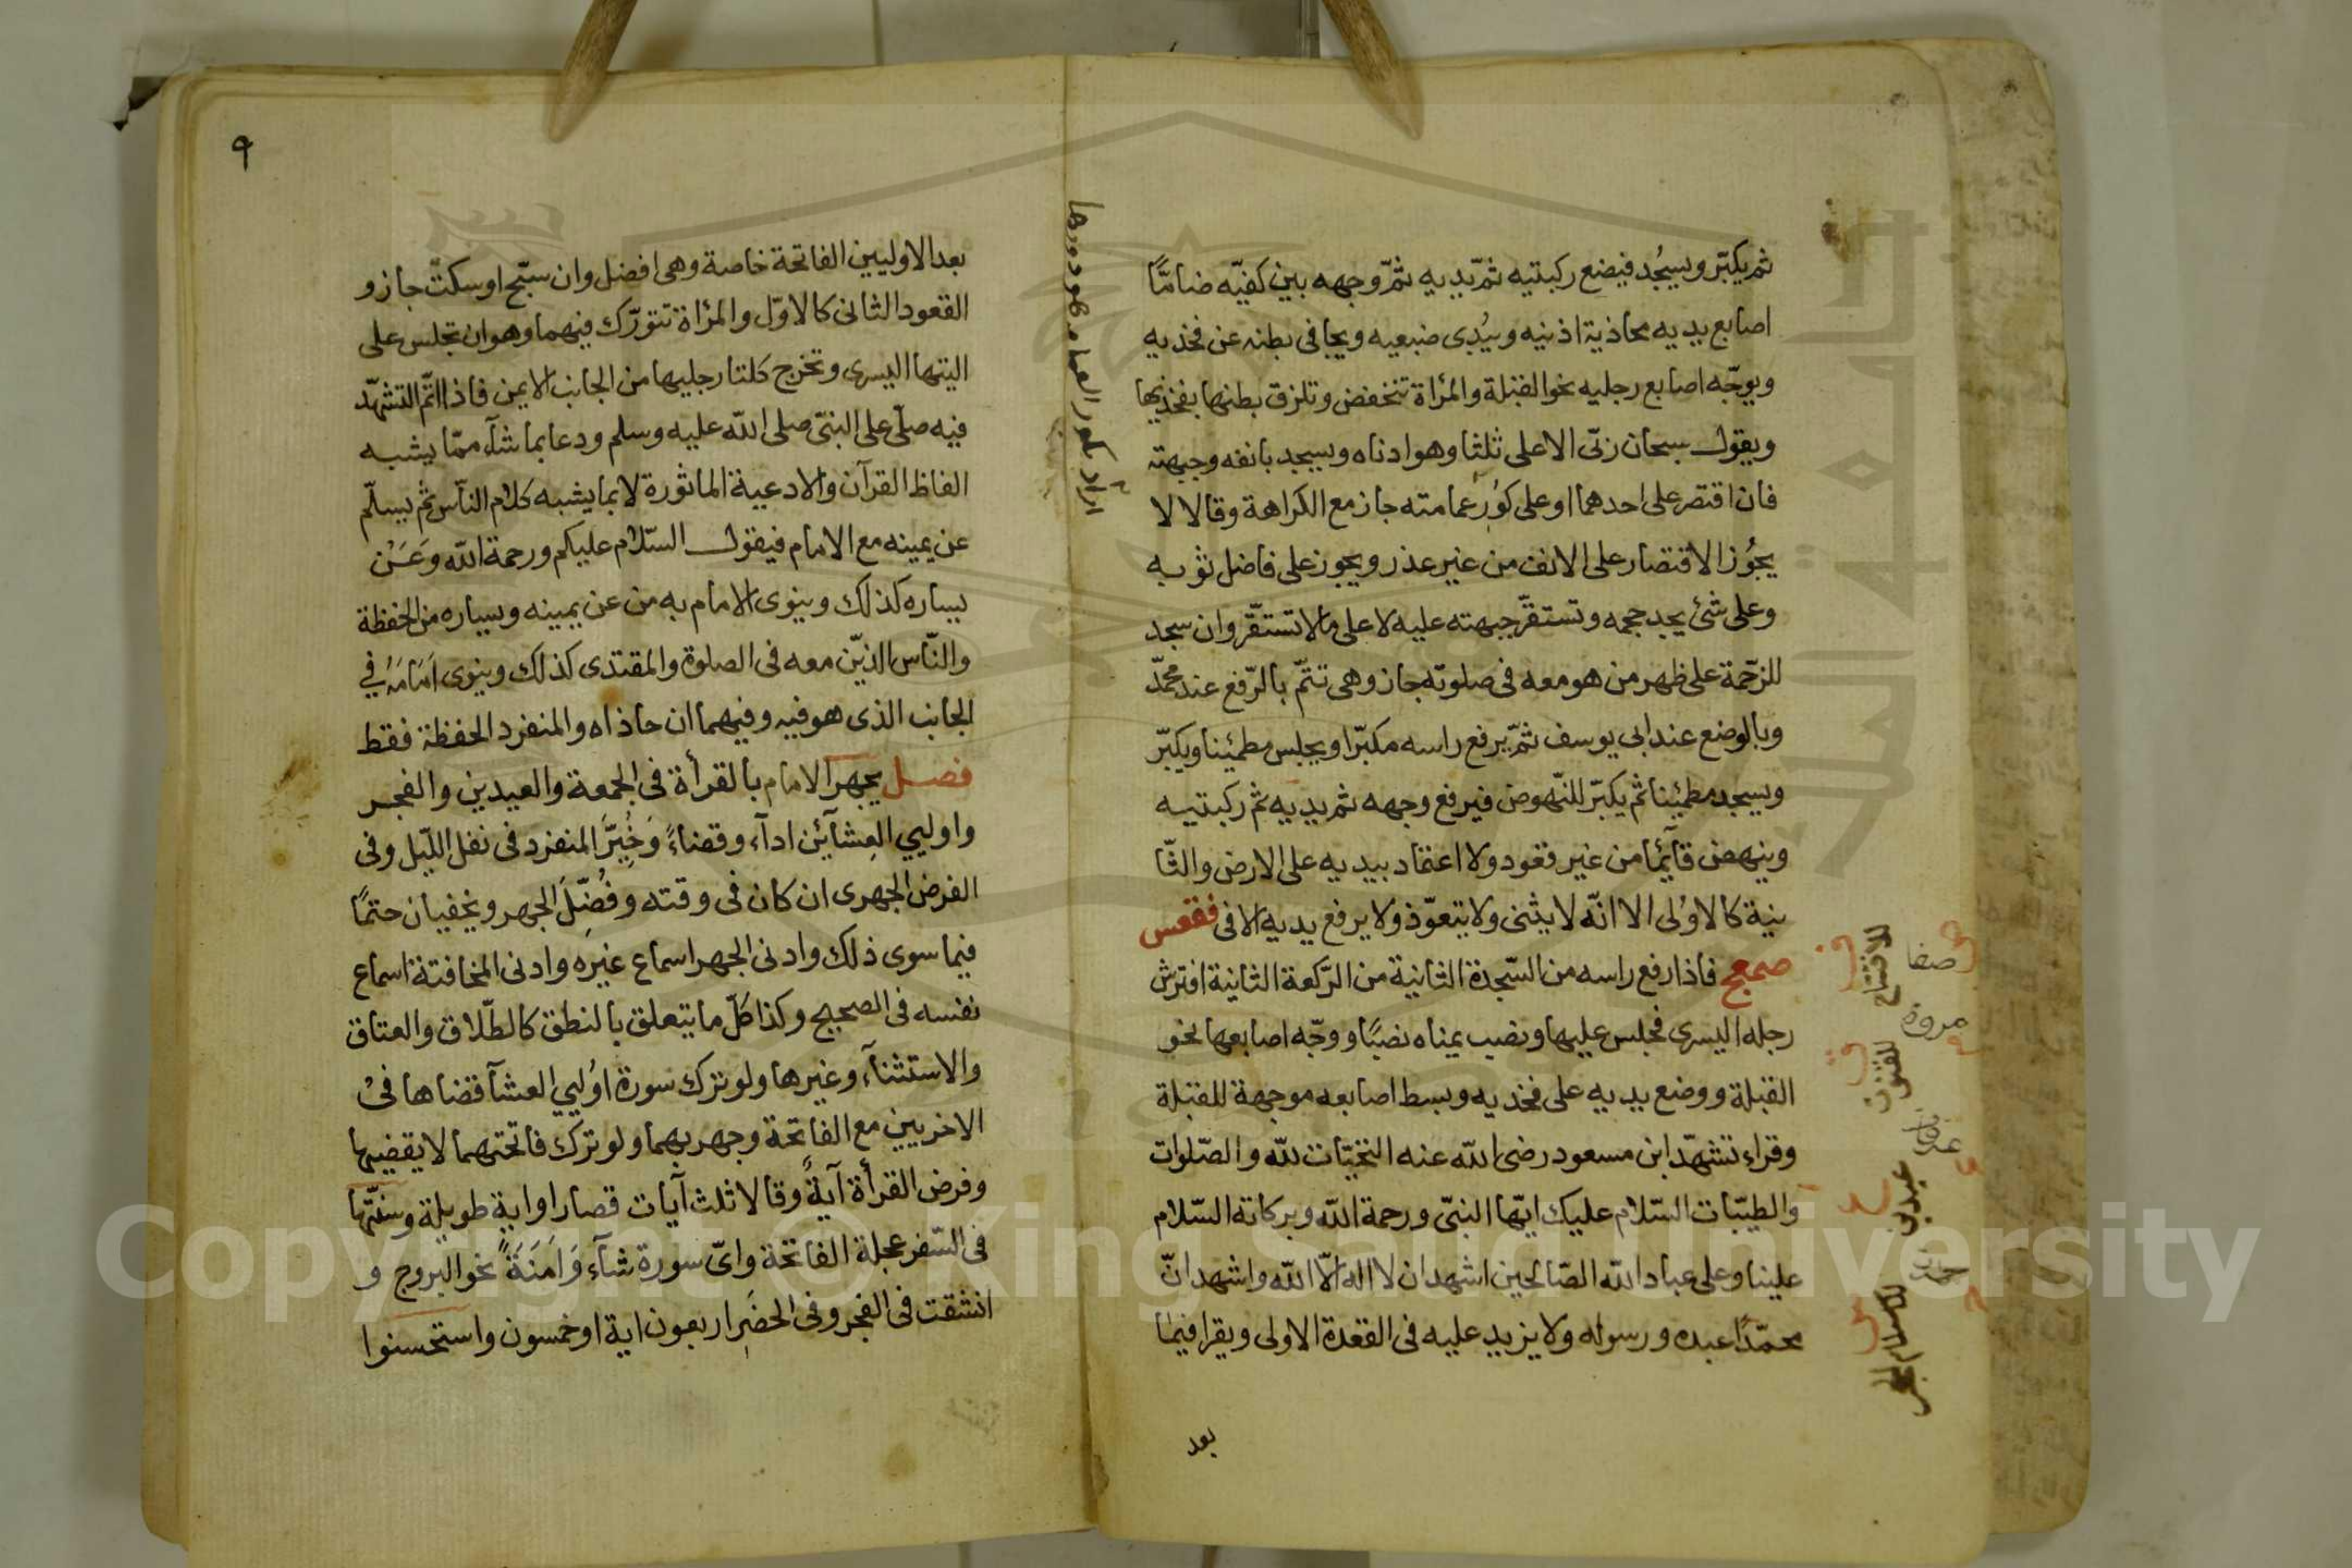 ثم يكبّر ويسجُد فيضع ركبتيه ثمّ يديه ثمّ وجهه بين كفيّه ضامّاً
اصابع يديه محاذية اذنيه ويُبدى ضبعيه ويجافى بطنه عن فخذيه
ويوجّه اصابع رجليه نحو القبلة والمرٔاة تنخفض وتلزق بطنها بفخذيها
ويقول سبحان ربّى الاعلى ثلثا وهو ادناه ويسجد بانفه وجبهته
فان اقتصر على احدهما او على كوُرِ عمامته جاز مع الكراهة وقالا لا
يجوُز الاقتصار على الانف من غير عذر ويجوز على فاضل ثوبه
وعلى شئ يجد حجمه وتستقرّ جبهته عليه لا على مالا تستقّر وان سجد
للزّحمة على ظهر من هو معه فى صلوته جاز وهى تتمّ بالرّفع عند محمّد
وبالوضع عند ابى يوسف ثمّ يرفع راسه مكبّرا ويجلس مطمئينا ويكبّر
ويسجد مطمئينا ثم يكبّر للنّهوض فيرفع وجهه ثم يديه ثم ركبتيه
وينهض قآئما من غير قعود ولا اعتماد بيديه على الارض والثّا
نية كالاوُلى الا انّه لا يثنى ولا يتعوّذ ولا يرفع يديه الا فى فقعس
صمعج فاذا رفع راسه من السّجدة الثانية من الرّكعة الثانية افترش
رجله اليسرى فجلس عليها ونصب يمناه نصبًا ووجّه اصابعها نحو
القبلة ووضع يديه على فخذيه وبسط اصابعه موجهة للقبلة
وقراء تشهّد ابن مسعود رضى الله عنه التحيّات لله والصّلوات
والطيّبات السّلام عليك ايّها النبّى ورحمة الله وبركاته السّلام
علينا وعلى عباد الله الصّالحين اشهد ان لا اله الّا الله واشهد انّ
محمّدًا عبده ورسوله ولا يزيد عليه فى القعدة الاولى ويقرا فيما
بعد
الافتتاح
صفا
مروة
للقنوت
عرفات
عيدين
جمرات
للاستلام الحجر
٩
بعد الاوليين الفاتحة خاصة وهى افضل وان سبّح او سكتّ جاز و
القعود الثانى كالاوّل والمرٔاة تتورّك فيهما وهو ان تجلس على
اليتها اليسرى وتخرج كلتا رجليها من الجانب الايمن فاذا اتّم التشهّد
فيه صلّى على النبّى صلى الله عليه وسلم ودعا بما شآء ممّا يشبه
الفاظ القرآن والادعية الماثورة لا بما يشبه كلام النّاس ثمّ يسلّم
عن يمينه مع الامام فيقول السّلام عليكم ورحمة الله وَعَنْ
يساره كذلك وينوى الامام به من عن يمينه ويساره من الحفظة
والنّاس الذيّن معه فى الصلوة والمقتدى كذلك وينوى اِمَامَهُ فى
الجانب الذى هو فيه وفيهما ان حاذاه والمنفرد الحفظة فقط
فصل يجهر الامام بالقرأة فى الجمعة والعيدين والفجر
واوليي العِشآئين ادآء وقضاءً وَخُيِّرَ المنفرد فى نفل اللّيل وفى
الفرض الجهرى ان كان فى وقته وفُضّلَ الجهر ويخفيان حتمًا
فيما سوى ذلك وادنى الجهر اسماع غيره وادنى المخافتة اسماع
نفسه فى الصحيح وكذا كلّ ما يتعلق بالنطق كالطّلاق والعتاق
والاستثنآء وغيرها ولو ترك سورة اوُليي العشآ قضاها فى
الاخريين مع الفاتحة وجهر بهما ولو ترك فاتحتهما لا يقضيها
وفرض القرأة آيةً وقالا ثلث آيات قصار او اية طويلة وسنّتها
فى السّفر عجلة الفاتحة واىّ سورة شآء وَاَمَنَةً نحو البروج و
انشقت فى الفجر وفى الحضَرِ اربعون اية او خمسون واستحسنوا